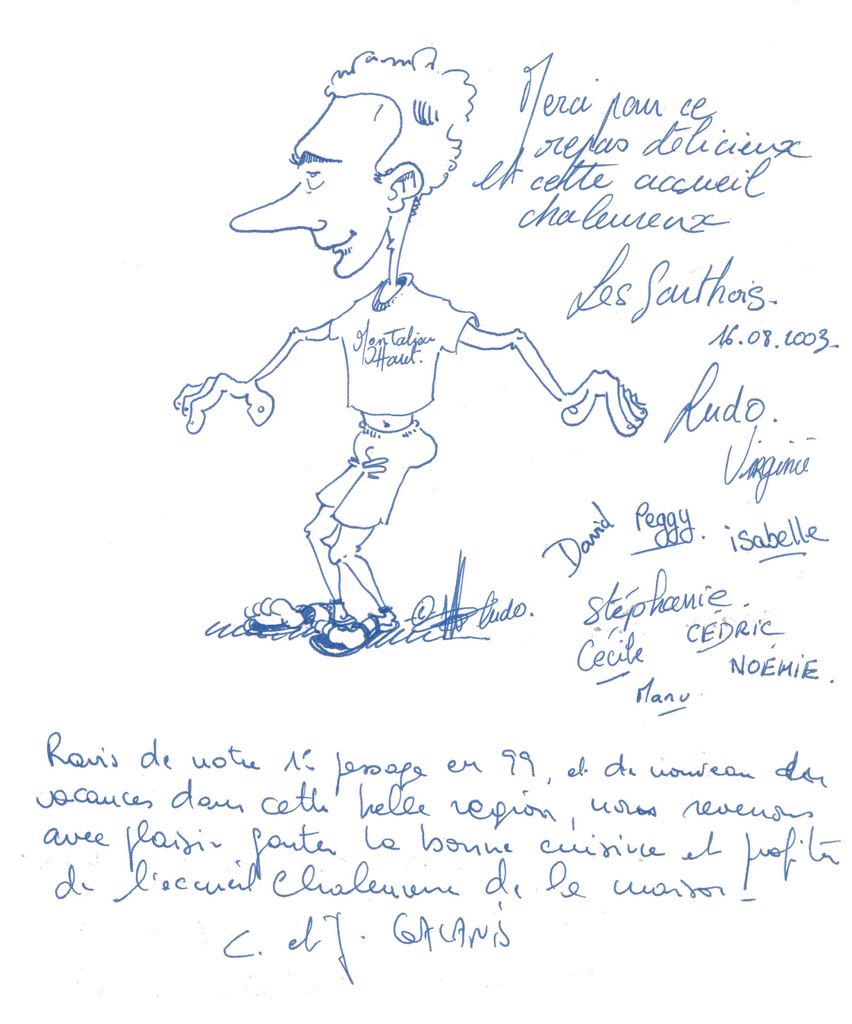 Merci pour ce
repas délicieux
et cette accueil
chaleureux
Les Sarthois.
16.08.2003.
Montalieu
Haut.
Ludo.
Virginie
David Peggy. isabelle
Stéphanie.
Cécile CÉDRIC
NOÉMIE.
Manu
© Ludo.
Ravis de notre 1er passage en 99, et de nouveau en
vacances dans cette belle région, nous revenons
avec plaisir gouter la bonne cuisine et profiter
de l'accueil chaleureux de la maison !
C. et J. GALANIS